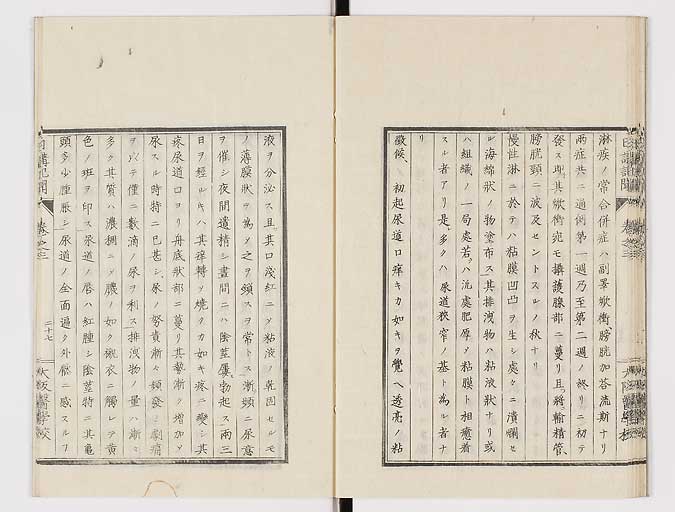 淋疾ノ常合併症ハ副睪焮衝、膀胱加答流斯ナリ
両症共ニ過倒第一週乃至第二週ノ終リニ初テ
發ス其焮衝宛モ攝護腺部ニ蔓リ且將輸精管、
膀胱頸ニ波及セントスルノ秋ナリ
慢性淋ニ於テハ粘膜凹凸ヲ生シ處々ニ潰爛セ
ル海綿狀ノ物塗布ス其排洩物ハ粘液狀ナリ或
ハ組織ノ一局處若クハ汎處肥厚ノ粘膜ト相癒着
スル者アリ是多クハ尿道狹窄ノ基ト為ル者ナ
リ
徴候、初起尿道口痒キカ如キヲ覺ヘ透亮ノ粘
液ヲ分泌ス且其口淺紅ニメ粘液ノ乾固セルモ
ノ薄膜狀ヲ為メ之ヲ頭スヲ常トス漸頻ニ尿意
ヲ催シ夜間遺精シ晝間ニハ陰莖屢勃起ス両三
日ヲ經ルキハ其痒轉メ燒クカ如キ疼ニ變シ其
疼尿道口ヨリ舟底狀部ニ蔓リ其勢漸ク增加メ
尿スル時特ニ已甚シ、尿ノ努責漸々頻發シ劇痛
ヲ以テ僅ニ數滴ノ尿ヲ利ス排洩物ノ量ハ漸々
多ク其質ハ濃稠ニメ膿ノ如ク襯衣ニ觸レテ黄
色ノ斑ヲ印ス尿道ノ唇ハ紅腫シ陰莖特ニ其龜
頭多少腫脹シ尿道ノ全面遍ク外傷ニ感スルヿ
日講記聞
卷之三
二十七
大阪醫學校